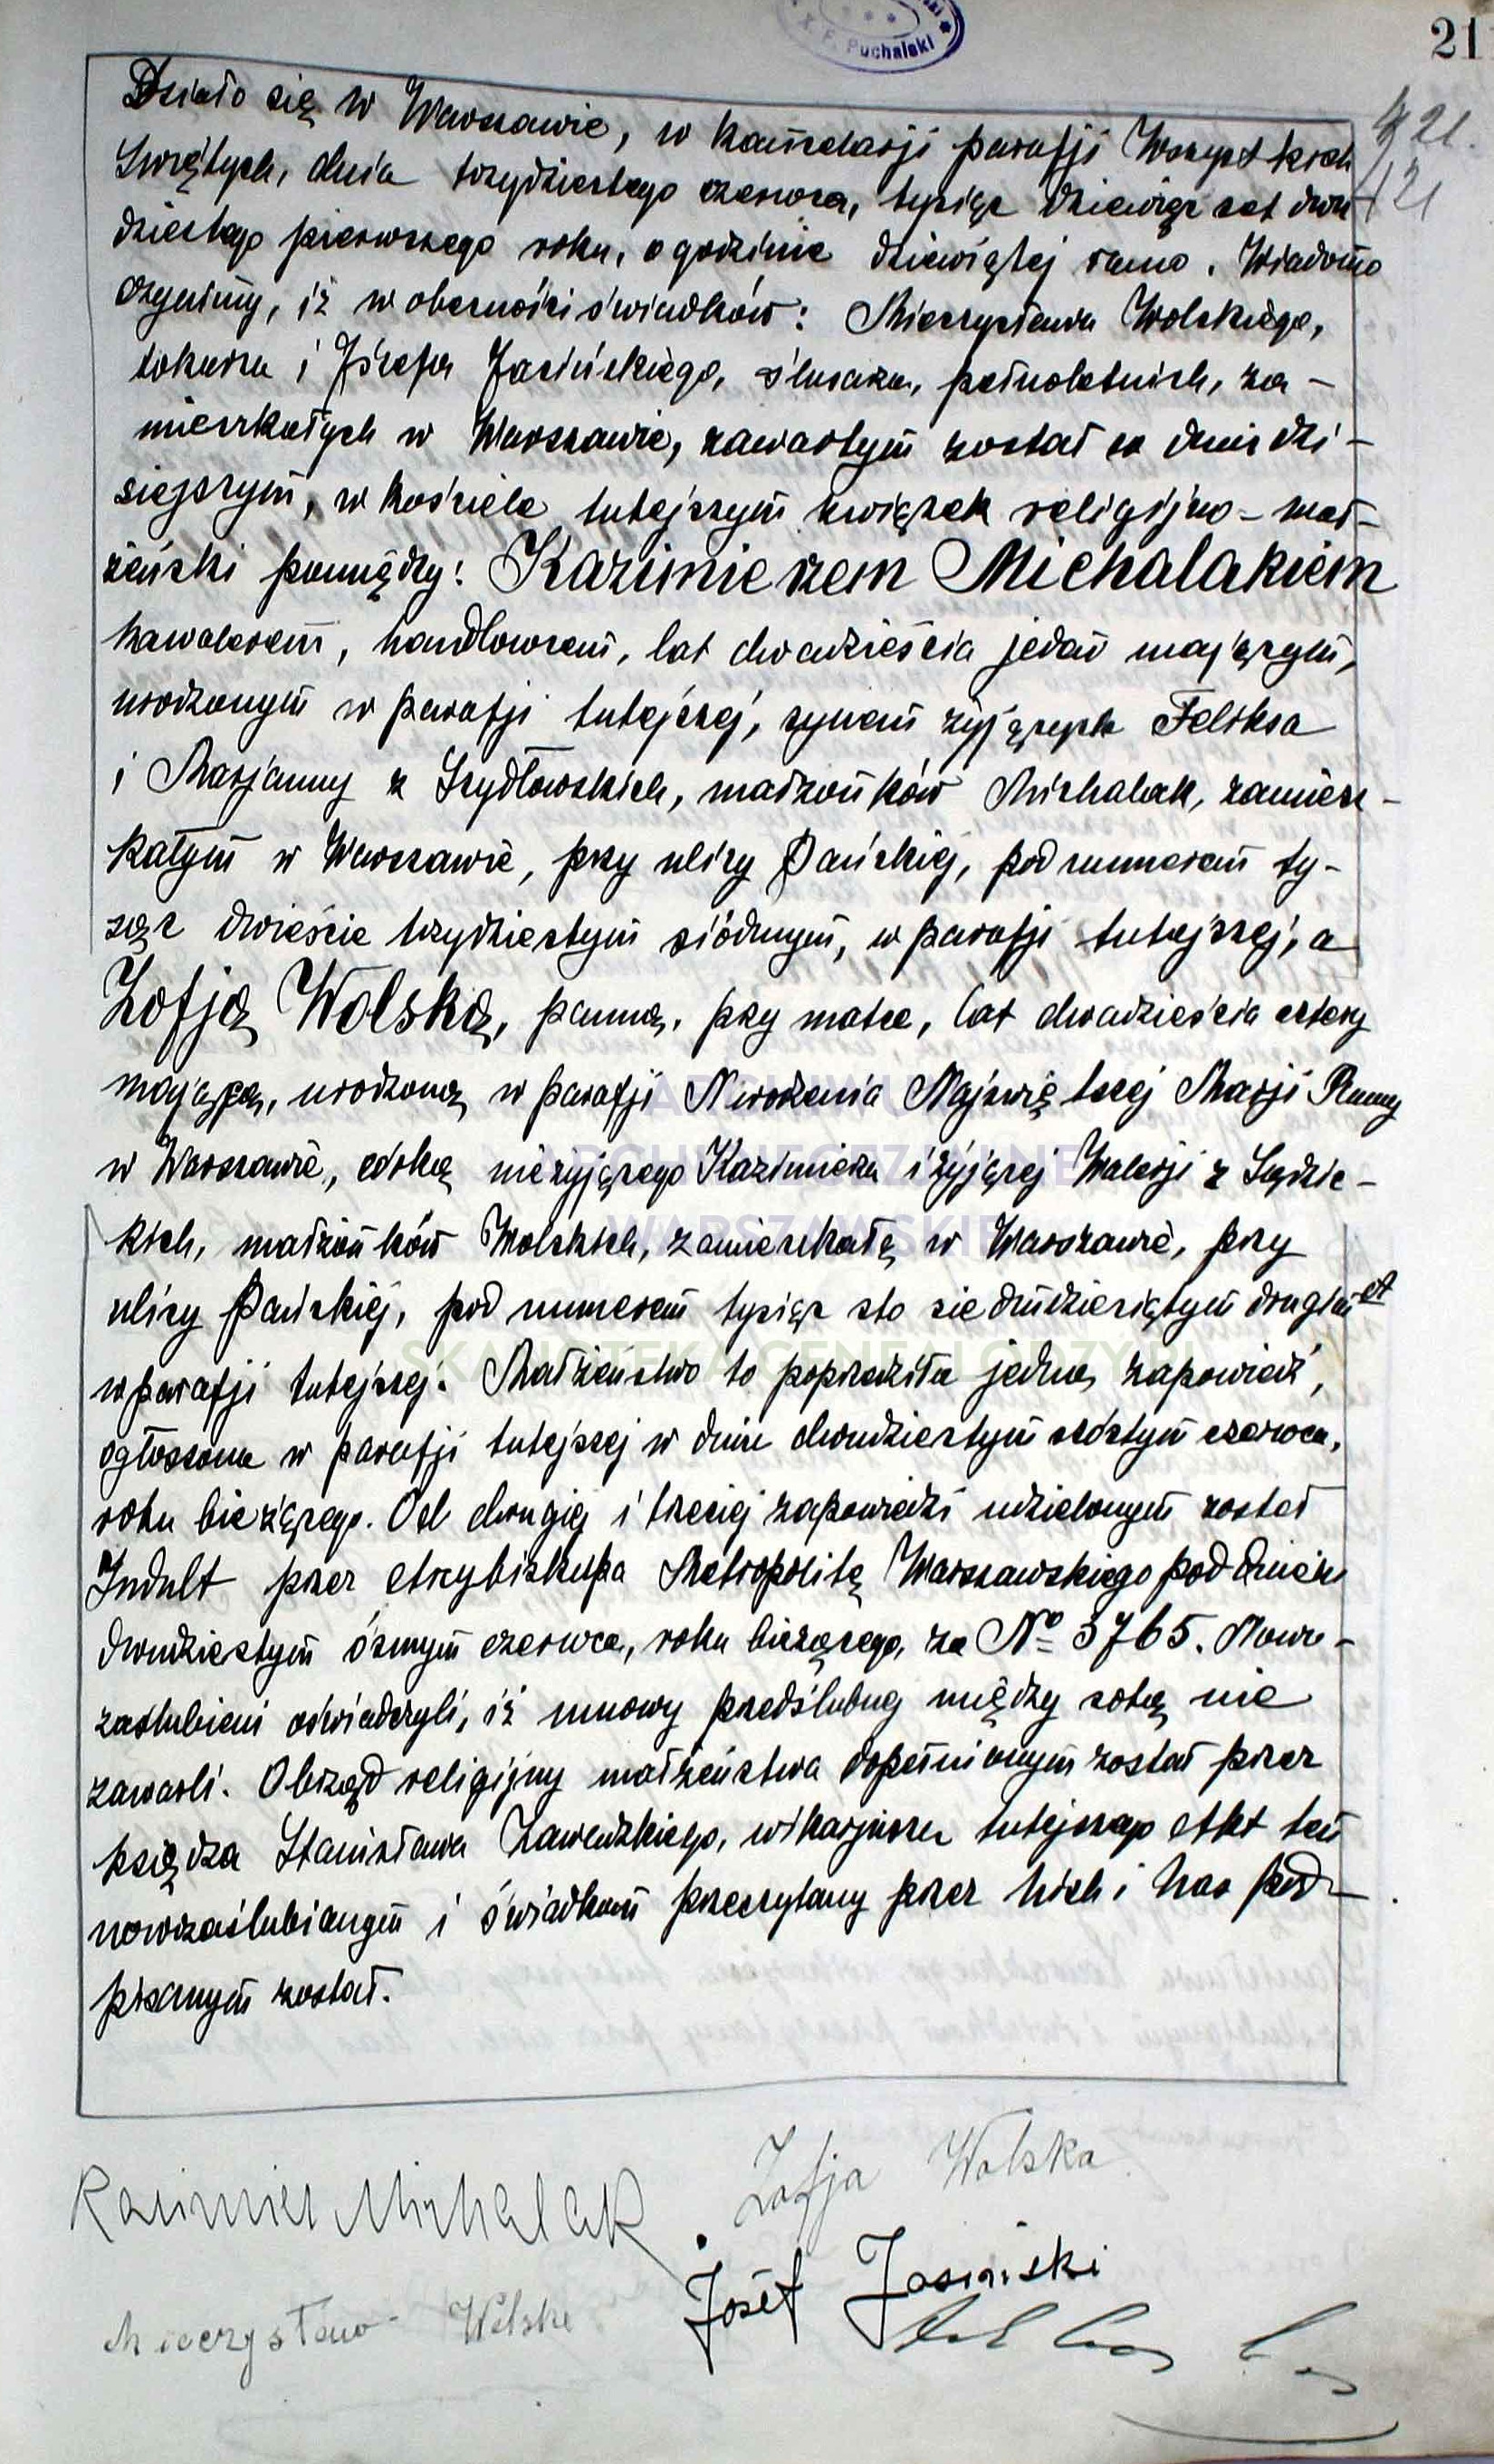 X. F. Puchalski
21
Działo się w Warszawie, w kancelarji parafji Wszystkich
Świętych, dnia trzydziestego czerwca, tysiąc dziewięćset dwu-
dziestego pierwszego roku, o godzinie dziewiątej rano. Wiadomo
czynimy, iż w obecności świadków: Mieczysława Wolskiego,
tokarza i Józefa Jasińskiego, ślusarza, pełnoletnich, za-
mieszkałych w Warszawie, zawartym został w dniu dzi-
siejszym, w kościele tutejszym związek religijno-mał-
żeński pomiędzy: Kazimierzem Michalakiem
kawalerem, handlowcem, lat dwadzieścia jeden mającym,
urodzonym w parafji tutejszej, synem żyjących Feliksa
i Marjanny z Szydłowskich, małżonków Michalak, zamiesz-
kałym w Warszawie, przy ulicy Pańskiej, pod numerem ty-
siąc dwieście trzydziestym siódmym, w parafji tutejszej, a
Zofją Wolską, panną, przy matce, lat dwadzieścia cztery
mającą, urodzoną w parafji Narodzenia Najświętszej Marji Panny
w Warszawie, córką nieżyjącego Kazimierza i żyjącej Walerji z Sędzic-
kich, małżonków Wolskich, zamieszkałą w Warszawie, przy
ulicy Pańskiej, pod numerem tysiąc sto siedmdziesiątym drugim A
w parafji tutejszej. Małżeństwo to poprzedziła jedna zapowiedź,
ogłoszona w parafji tutejszej w dniu dwudziestym szóstym czerwca,
roku bieżącego. Od drugiej i trzeciej zapowiedzi udzielonym został
Indult przez Arcybiskupa Metropolitę Warszawskiego pod dniem
dwudziestym ósmym czerwca, roku bieżącego, za No 3765. Nowo-
zaślubieni oświadczyli, iż umowy przedślubnej między sobą nie
zawarli. Obrząd religijny małżeństwa dopełnionym został przez
księdza Stanisława Zawadzkiego, wikarjusza tutejszego Akt ten
nowozaślubionym i świadkom przeczytany przez nich i nas pod-
pisanym został.
Kazimierz Michalak
Zofja Wolska
Józef Jasiński
Mieczysław Wolski
ARCHIWUM
ARCHIDIECEZJALNE
WARSZAWSKIE
SKANOTEKA.GENEALODZY.PL